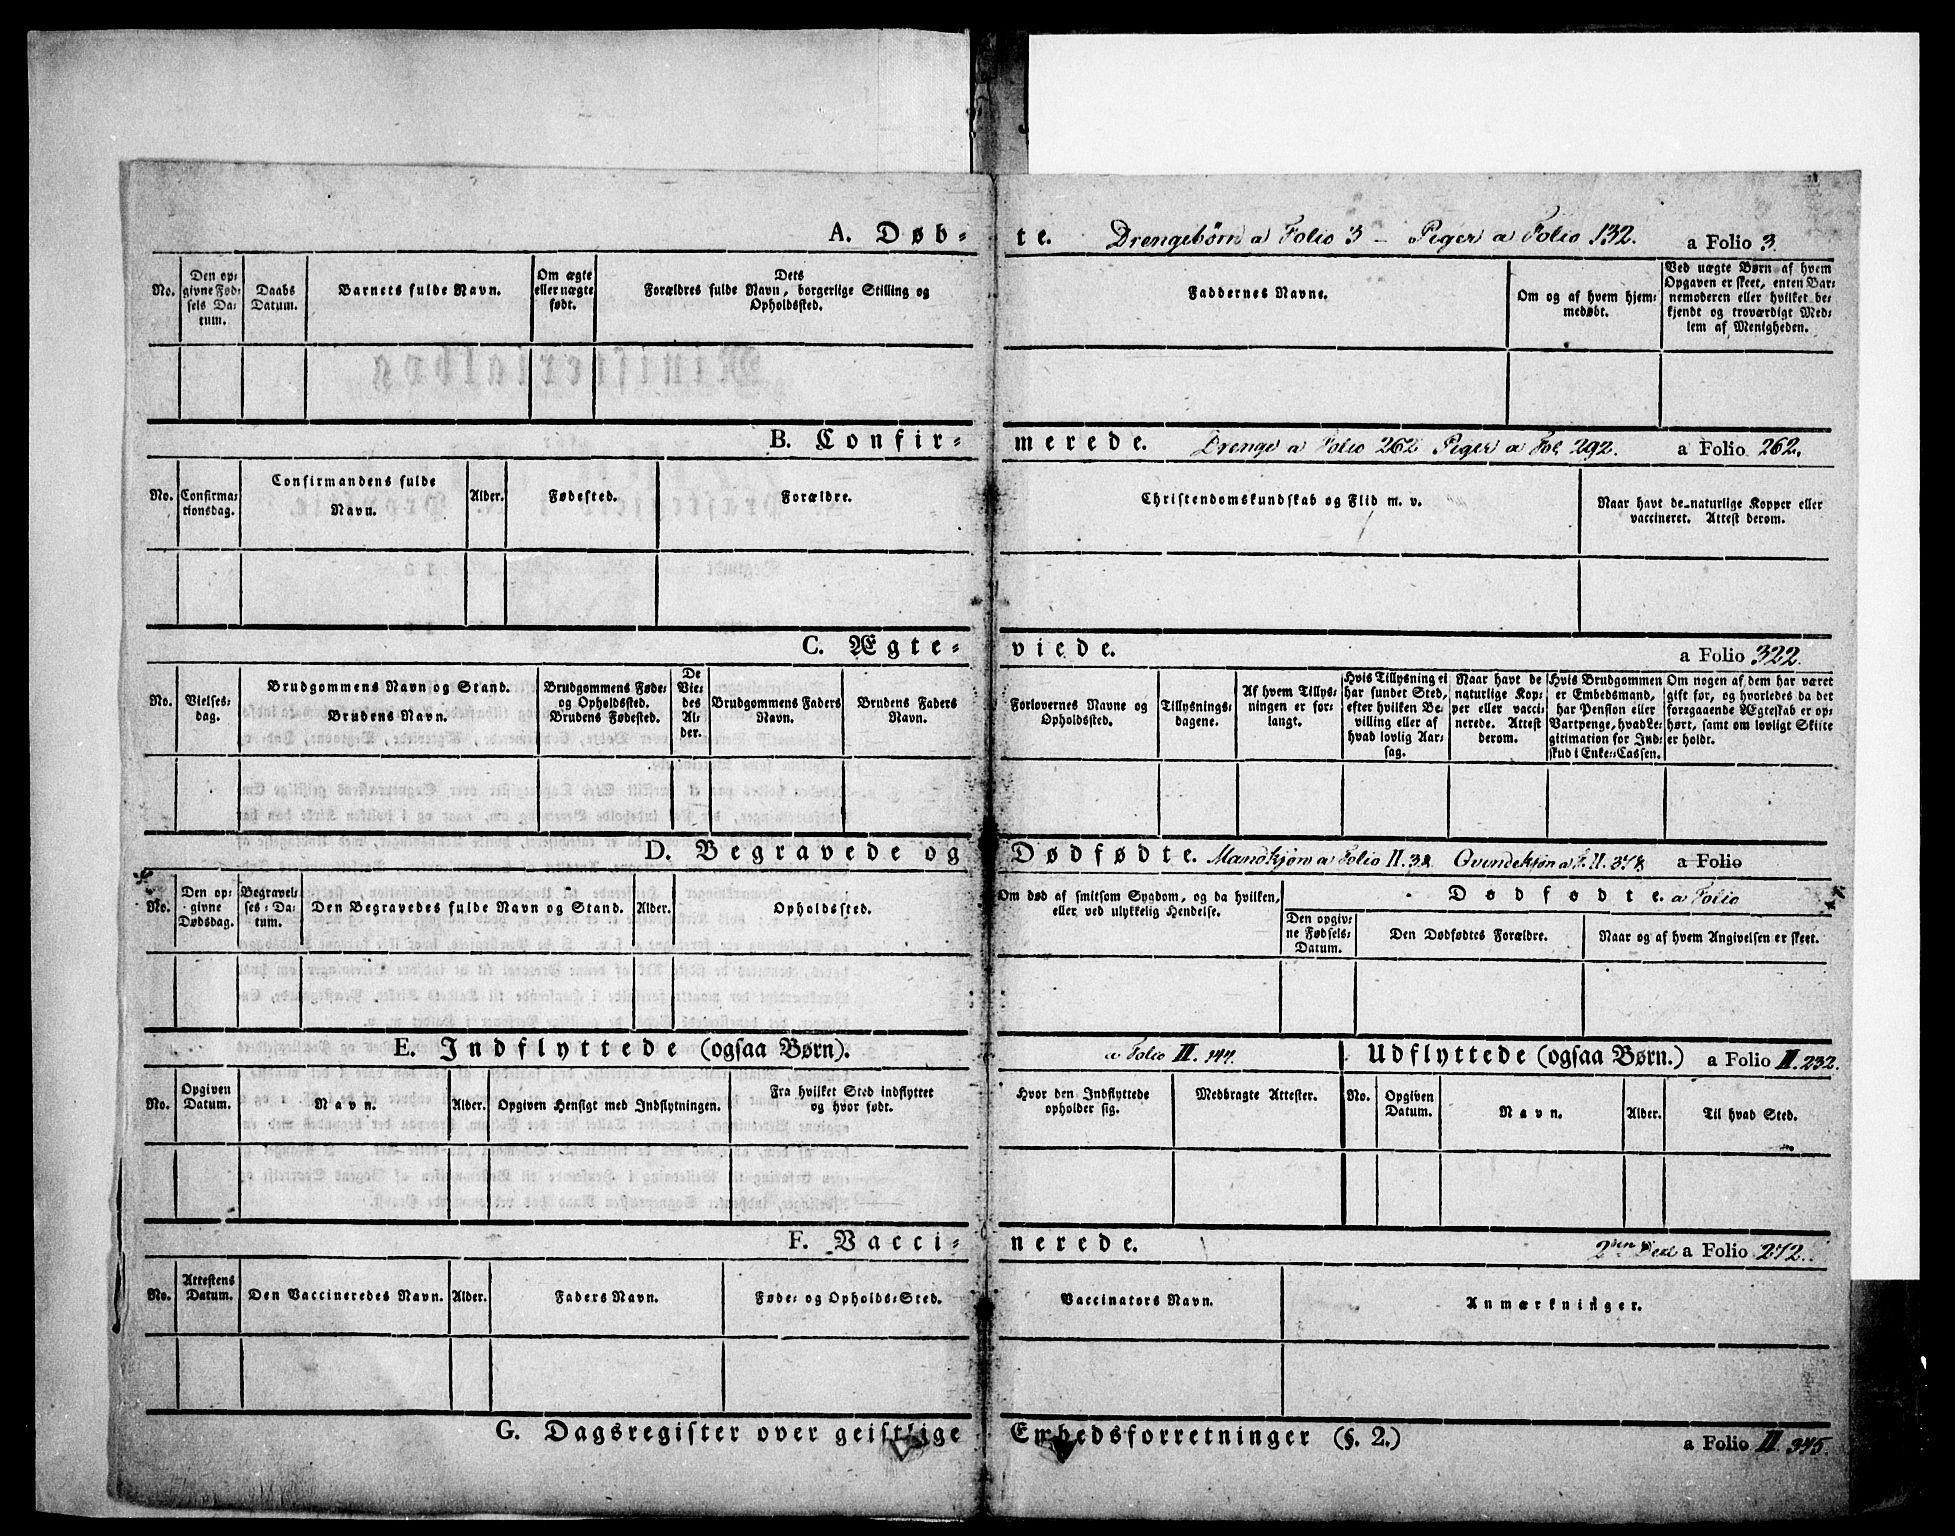 A. Døb-te. Drengebørn a Folio 3 - Piger a Folio 132. a Folio 3.
No.
Den op-
givne Fød-
sels Da-
tum.
Daabs
Datum.
Barnets fulde Navn.
Om ægte
eller uægte
født.
Dets
Forældres fulde Navn, borgerlige Stilling og
Opholdssted.
Faddernes Navne.
Om og af hvem hjem-
medøbt.
Ved uægte Børn af hvem
Opgaven er skeet, enten Bar-
nemoderen eller hvilket be-
kjendt og troværdigt Med-
lem af Menigheden.
B. Confir-merede. Drenge a Folio 262 Piger a Fol 292. a Folio 262.
No.
Confirma-
tionsdag.
Confirmandens fulde
Navn.
Alder.
Fødested.
Forældre.
Christendomskundskab og Flid m. v.
Naar havt de naturlige Kopper eller
vaccineret. Attest derom.
C. Ægte-viede. a Folio 322.
No.
Vielses-
dag.
Brudgommens Navn og Stand.
Brudens Navn.
Brudgommens Føde-
og Opholdssted.
Brudens Fødested.
De
Vie-
des
Al-
der.
Brudgommens Faders
Navn.
Brudens Faders
Navn.
Forlovernes Navne og
Opholdssted.
Tillysnings-
dagene.
Af hvem Tillys-
ningen er for-
langt.
Hvis Tillysning ei
har fundet Sted,
efter hvilken Be-
villing eller af
hvad lovlig Aar-
sag.
Naar havt de
naturlige Kop-
per eller vacci-
nerede. Attest
derom.
Hvis Brudgommen
er Embedsmand,
har Pension eller
Vartpenge, hvad Le-
gitimation for Ind-
skud i Enke-Cassen.
Om nogen af dem har været
gift før, og hvorledes da det
foregaaende Ægteskab er op-
hørt, samt om lovligt Skifte
er holdt.
D. Begravede og Dødfødte. Mandkjøn a Folio II. Qvindekjøn a F. II. a Folio
No.
Den op-
givne
Dødsdag.
Begravel-
ses-Da-
tum.
Den Begravedes fulde Navn og Stand.
Alder.
Opholdssted.
Om død af smitsom Sygdom, og da hvilken,
eller ved ulykkelig Hendelse.
Dødfødte. a Folio
Den opgiv-
ne Fødsels-
Datum.
Den Dødfødtes Forældre.
Naar og af hvem Angivelsen er skeet.
E. Indflyttede (ogsaa Børn). a Folio II. 144. Udflyttede (ogsaa Børn.) a Folio II. 232.
No.
Opgiven
Datum.
Navn.
Alder.
Opgiven Hensigt med Indflytningen.
Fra hvilket Sted indflyttet
og hvor født.
Hvor den Indflyttede
opholder sig.
Medbragte Attester.
No.
Opgiven
Datum.
Navn.
Alder.
Til hvad Sted.
F. Vacci-nerede. a Folio 272.
No.
Attestens
Datum.
Den Vaccineredes Navn.
Alder.
Faders Navn.
Føde- og Opholds-Sted.
Vaccinators Navn.
Anmærkninger.
G. Dagsregister over geistlige Embedsforretninger (§. 2.) a Folio II. 345.